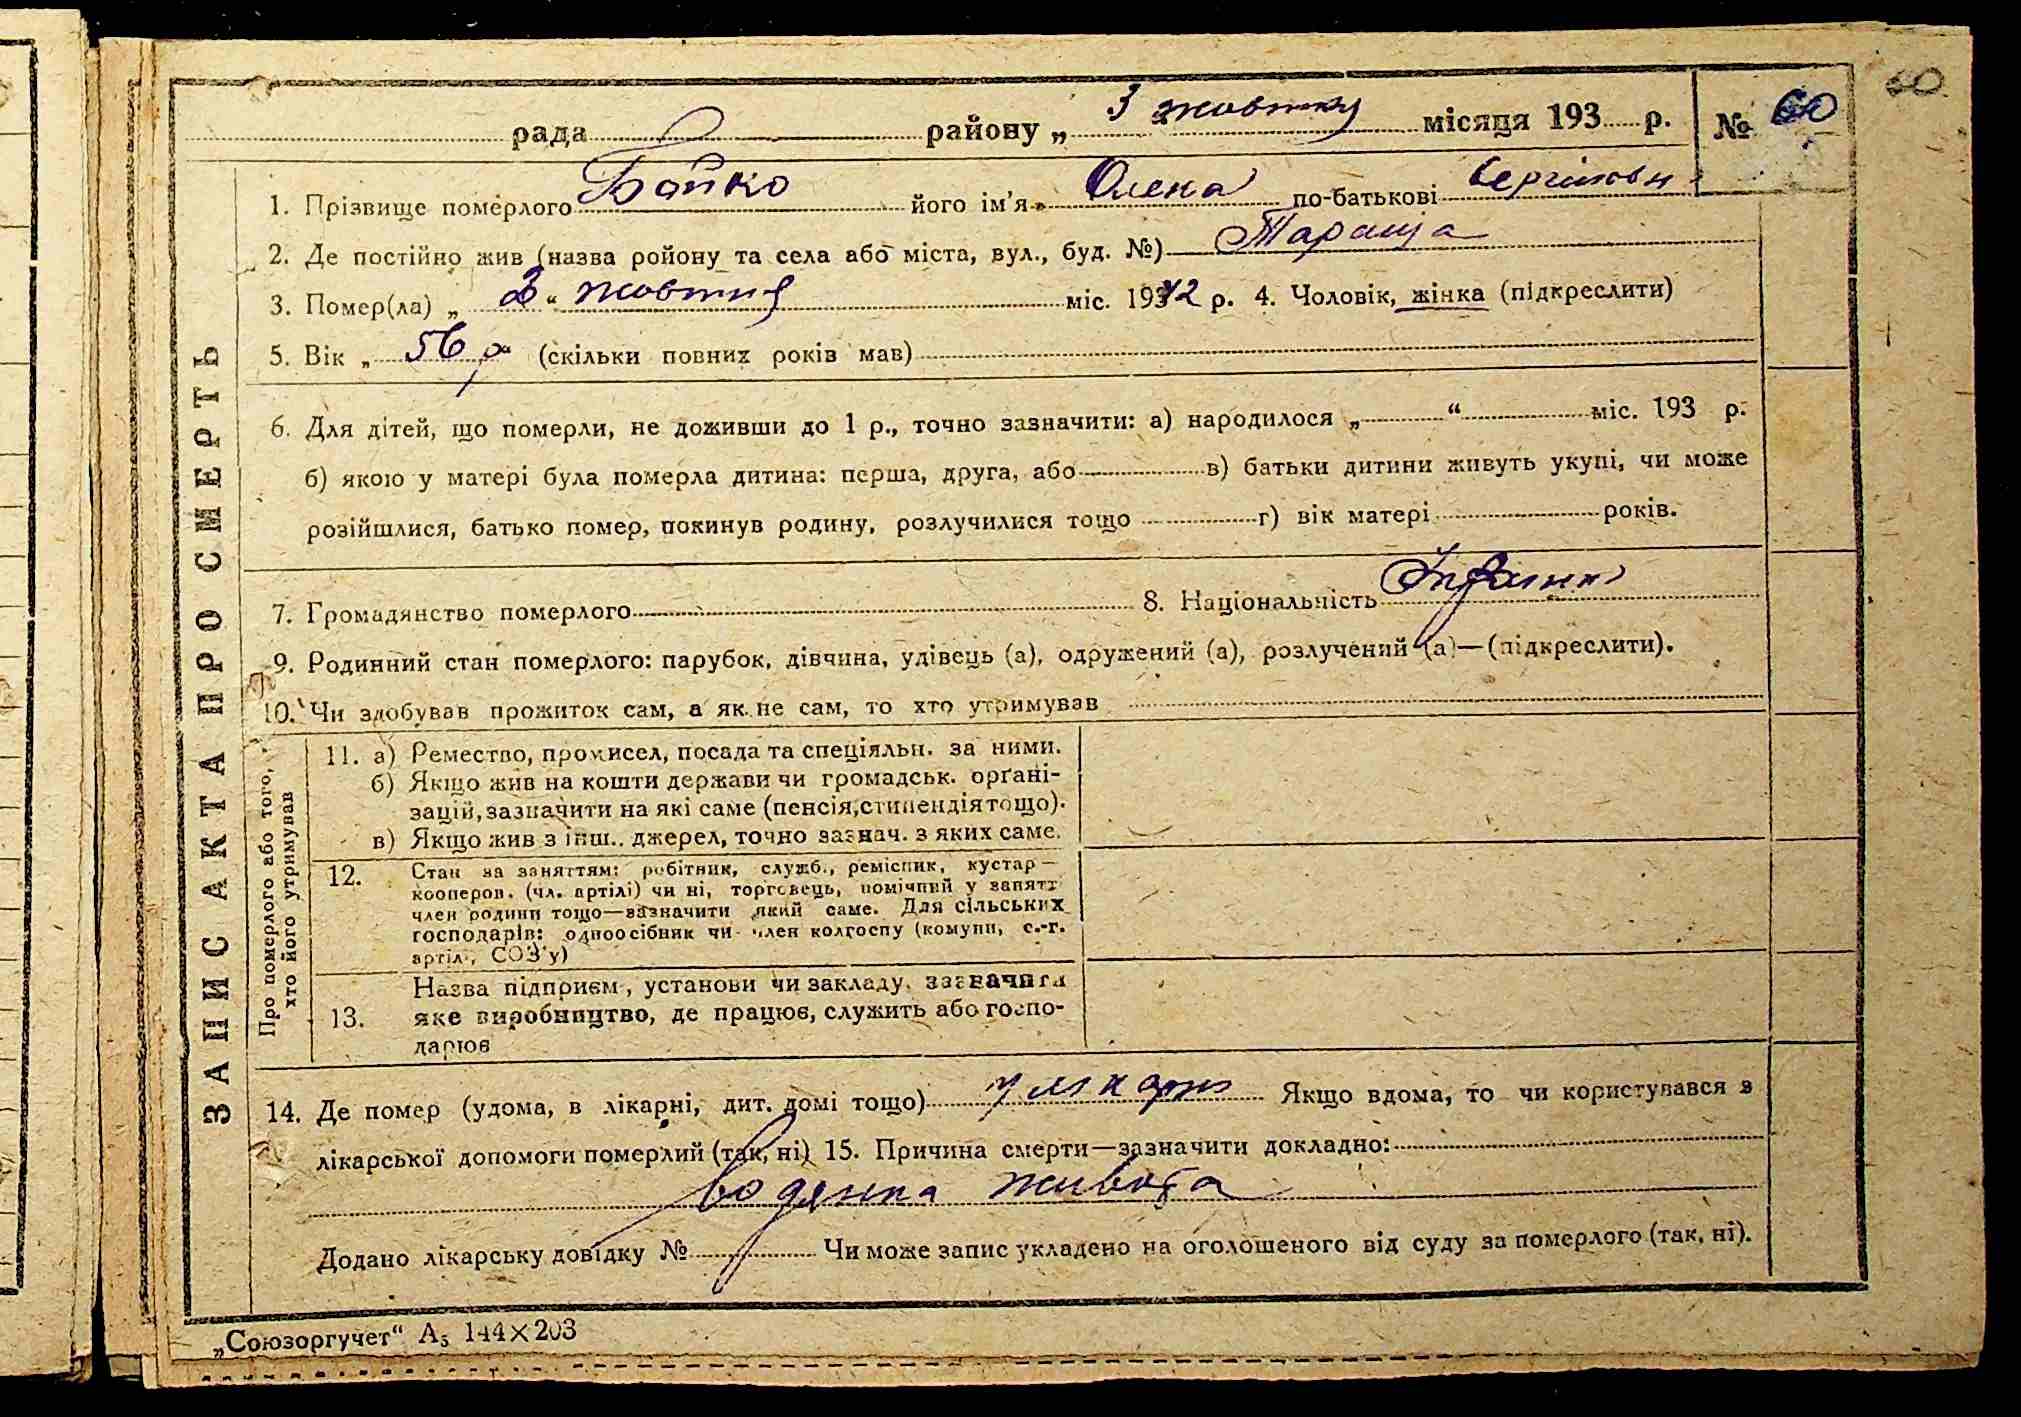 60
рада районУ „ 3 жовтня місяця 193 р. № 60
1. Прізвище померлого Бойко його ім'я Олена по-батькові Сергіївн
2. Де постійно жив (назва ройону та села або міста, вул., буд. №) Тараща
3. Помер(ла) „ 3 “ жовтня міс. 1942 р. 4. Чоловік, жінка (підкреслити)
5. Вік „ 56 р “ (скільки повних років мав)
6. Для дітей, що померли, не доживши до 1 р., точно зазначити: а) народилося „ “ міс. 193 р.
б) якою у матері була померла дитина: перша, друга, або в) батьки дитини живуть укупі, чи може
розійшлися, батько помер, покинув родину, розлучилися тощо г) вік матері років.
7. Громадянство померлого 8. Національність
9. Родинний стан померлого: парубок, дівчина, удівець (а), одружений (а), розлучений (а)—(підкреслити).
10. Чи здобував прожиток сам, а як не сам, то хто утримував
ЗАПИС АКТА ПРО СМЕРТЬ
Про померлого або того,
хто його утримував
11. а) Ремество, промисел, посада та спеціяльн. за ними.
б) Якщо жив на кошти держави чи громадськ. орґані-
зацій, зазначити на які саме (пенсія, стипендія тощо).
в) Якщо жив з інш.. джерел, точно зазнач. з яких саме.
12. Стан за заняттям: робітник, служб., ремісник, кустар—
кооперов. (чл. артілі) чи ні, торговець, помічний у занятт
член родини тощо—зазначити який саме. Для сільських
господарів: одноосібник чи член колгоспу (комуни, с.-г.
артілі, СОЗ'у)
13. Назва підприєм., установи чи закладу, зазначити
яке виробництво, де працює, служить або госпо-
дарює
14. Де помер (удома, в лікарні, дит. домі тощо) у лікарні Якщо вдома, то чи користувався з
лікарської допомоги померлий (так, ні) 15. Причина смерти—зазначити докладно:
водянка живота
Додано лікарську довідку № Чи може запис укладено на оголошеного від суду за померлого (так, ні).
„Союзоргучет“ А₅ 144×203